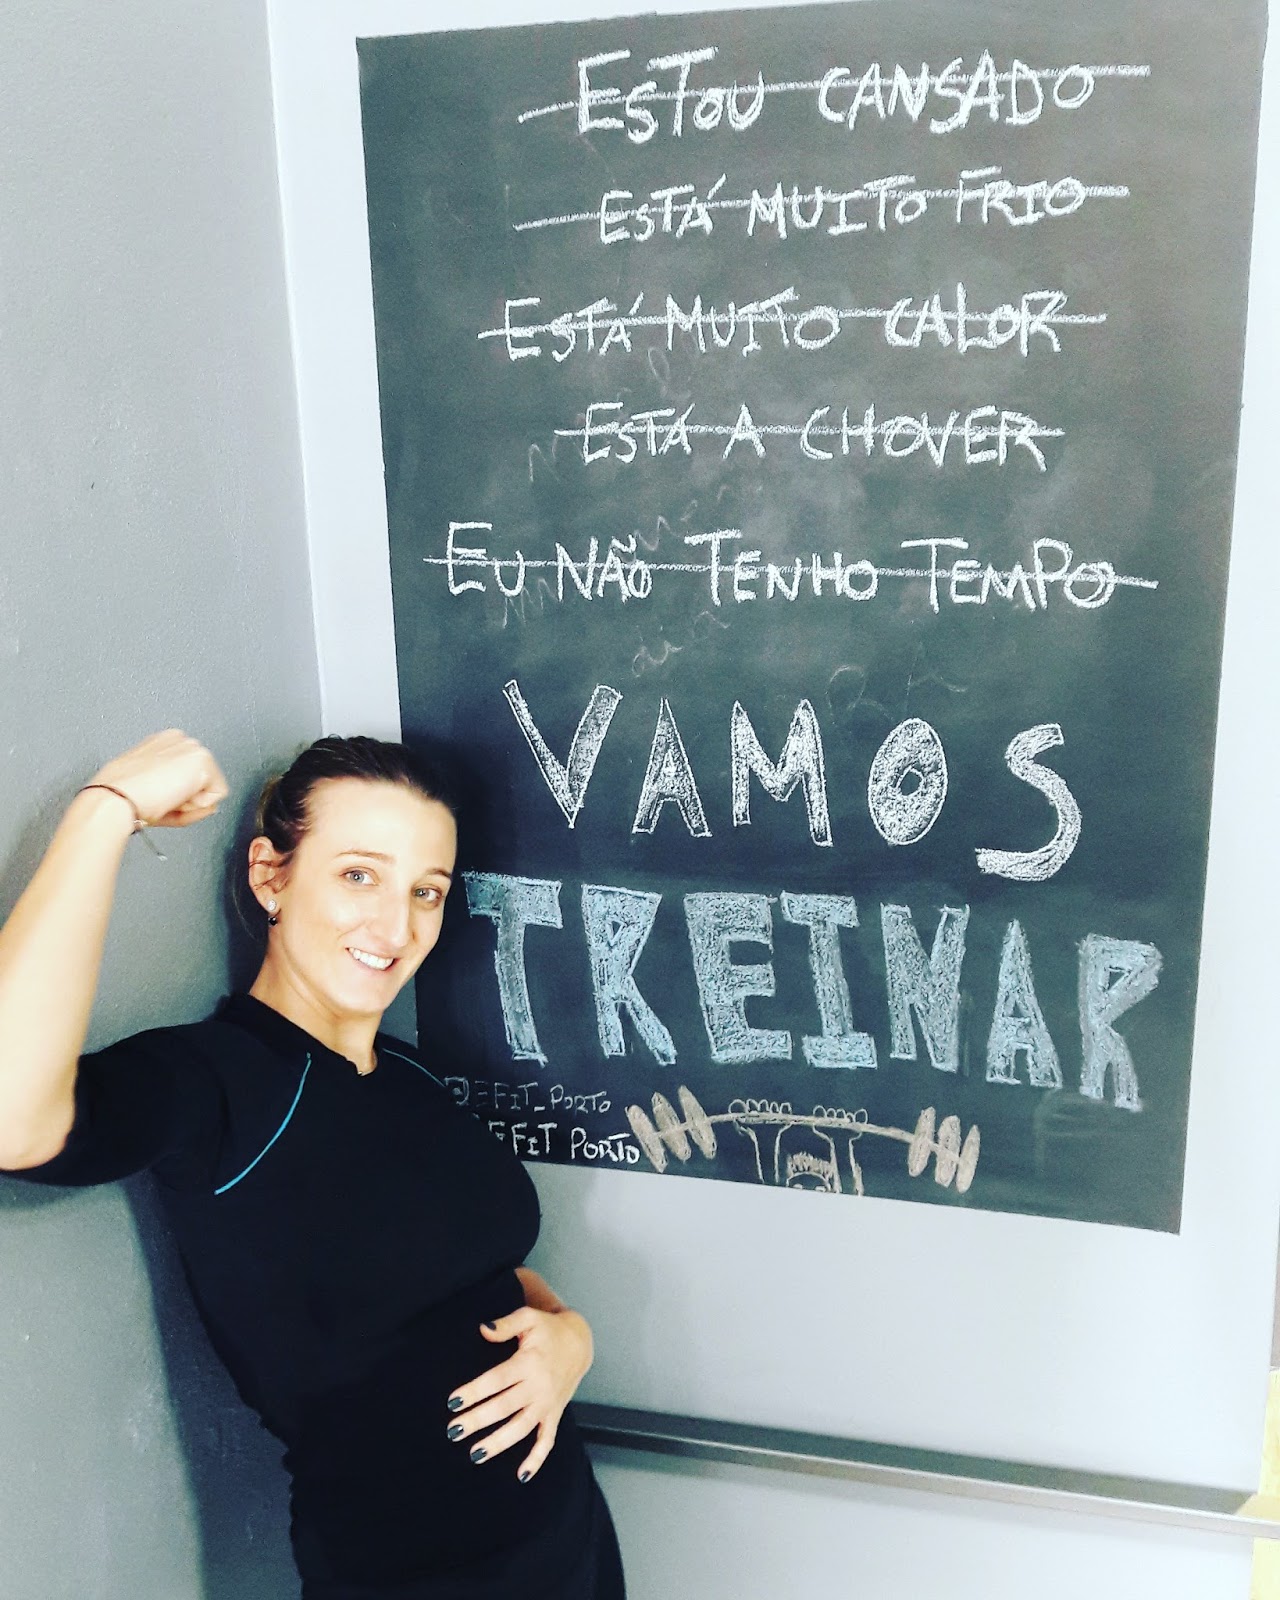 ESTOU CANSADO
ESTÁ MUITO FRIO
ESTÁ MUITO CALOR
ESTÁ A CHOVER
EU NÃO TENHO TEMPO
VAMOS
TREINAR
FIT_PORTO
FIT PORTO